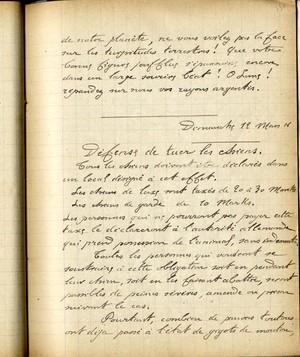 de notre planète, ne vous voilez pas la face
sur les turpitudes terrestres! Que votre
bonne figure joufflue s'épanouisse encore
dans un large sourire béat! O Lune!
répandez sur nous vos rayons argentés.
Dimanche 12 Mars
Défense de tuer les chiens.
Tous les chiens doivent être déclarés dans
un local désigné à cet effet.
Les chiens de luxe sont taxés de 20 à 30 Marks
Les chiens de garde de 10 Marks.
Les personnes qui ne pourront pas payer cette
taxe le déclareront à l'autorité allemande
qui prend possession de l'animal, sans indemnité.
Toutes les personnes qui voudront se
soustraire à cette obligation soit en perdant
leur chien, soit en les faisant abattre, seront
passibles de peines sévères, amende ou prison
suivant le cas.
Pourtant, combien de pauvres toutous
ont déjà passé à l'état de gigots de mouton,